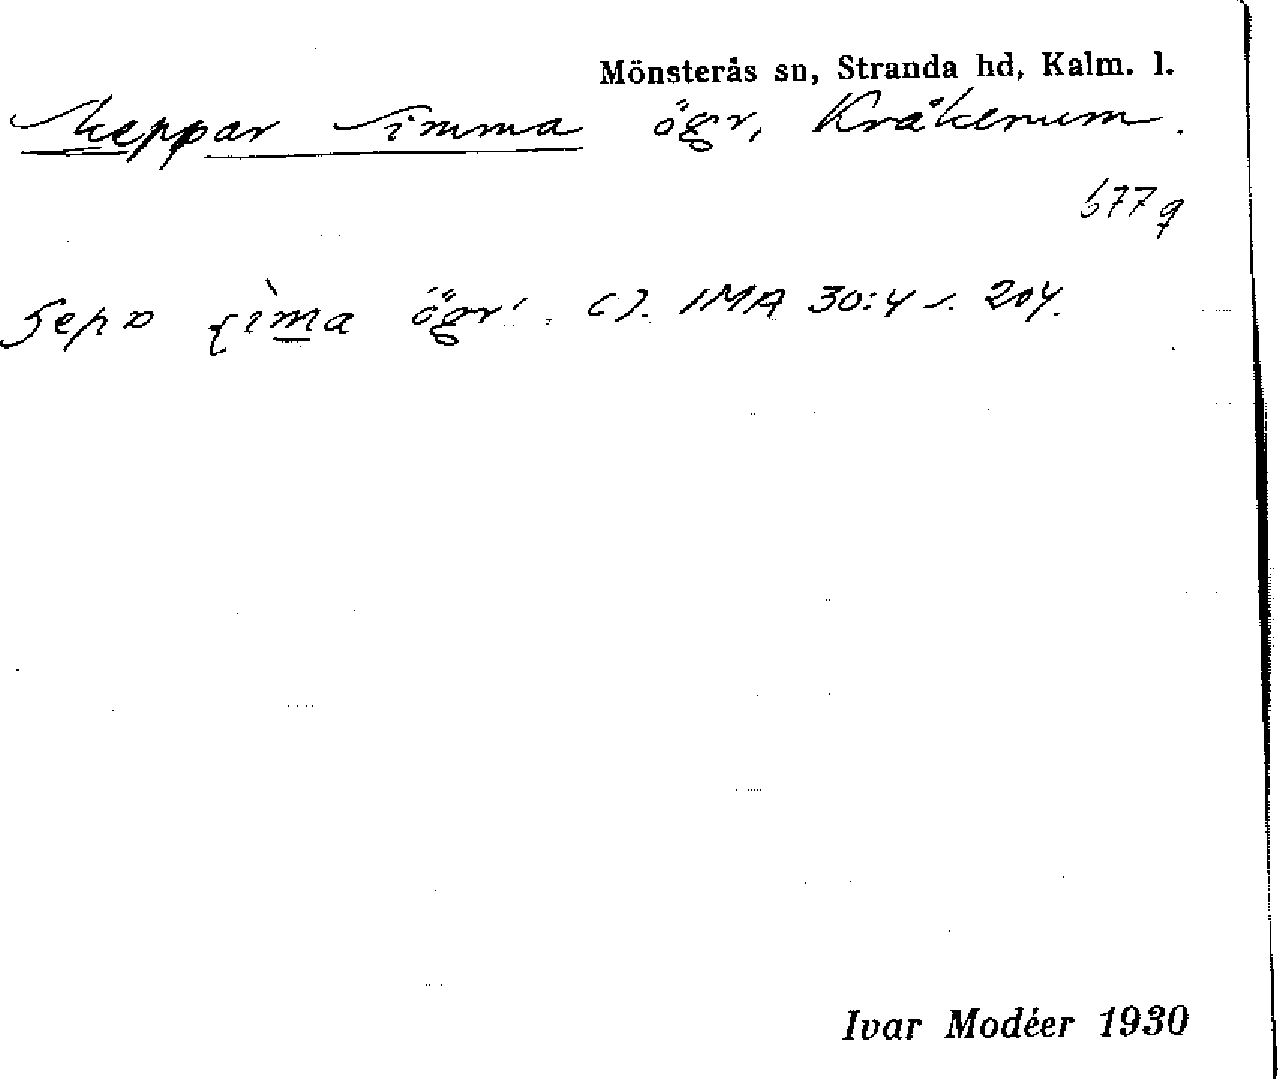 Mönsterås sn, Stranda hd, Kalm. l.
Skeppar Simma ögr, Kråkerum.
677 q
ögr. IMA 30:4 s. 204.
Ivar Modéer 1930